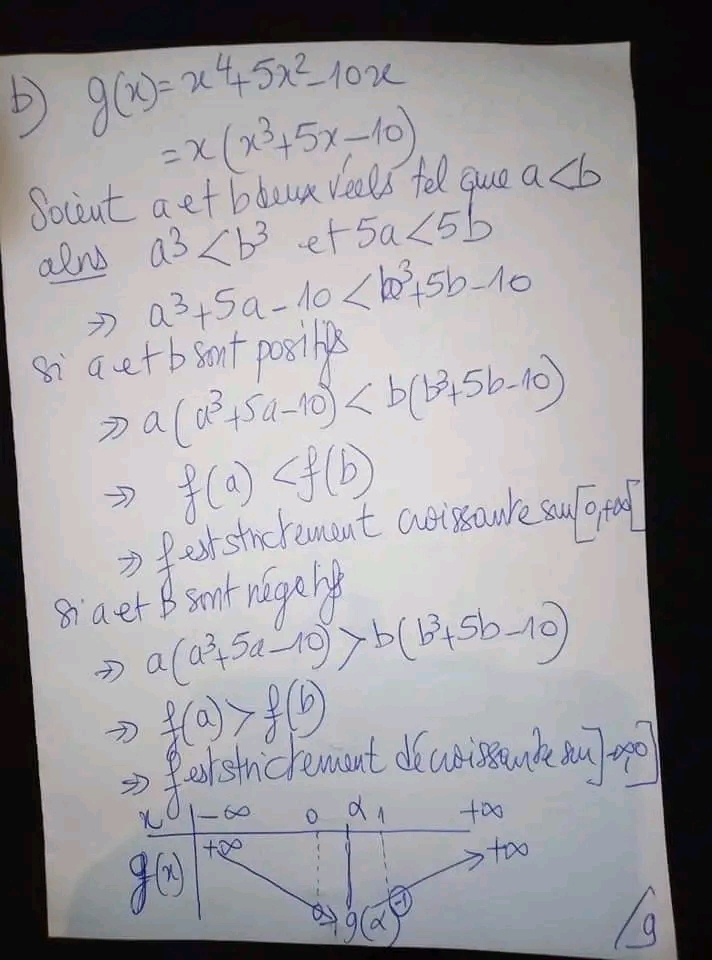 b) g(x)=x⁴+5x²-10x
=x(x³+5x-10)
Soient a et b deux réels tel que a<b
alors a³<b³ et 5a<5b
⇒ a³+5a-10<b³+5b-10
si a et b sont positifs
⇒ a(a³+5a-10)<b(b³+5b-10)
⇒ f(a)<f(b)
⇒ f est strictement croissante sur [0,+∞[
si a et b sont négatifs
⇒ a(a³+5a-10)>b(b³+5b-10)
⇒ f(a)>f(b)
⇒ f est strictement décroissante sur ]-∞,0]
x | -∞ 0 α 1 +∞
g(x) | +∞ +∞
g(α) -1
/9